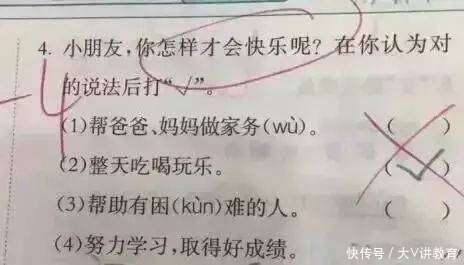 4. 小朋友,你怎样才会快乐呢?在你认为对
的说法后打“√”。
-4
(1)帮爸爸、妈妈做家务(wù)。 ( )
(2)整天吃喝玩乐。 (✓)
(3)帮助有困(kùn)难的人。 ( )
(4)努力学习,取得好成绩。
快传号/大V讲教育